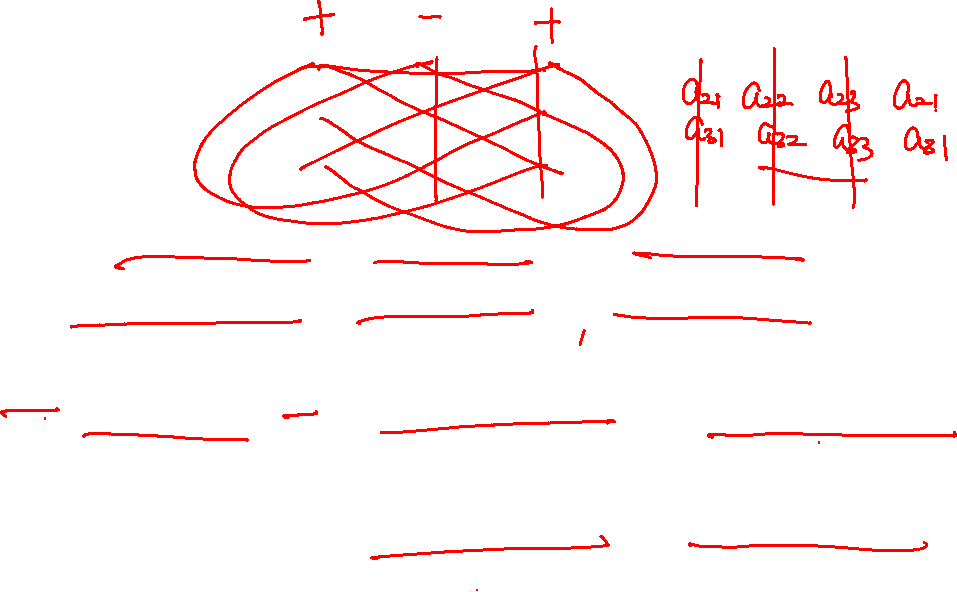 + - +
a21 a22 a23 a21
a31 a32 a33 a31
- -